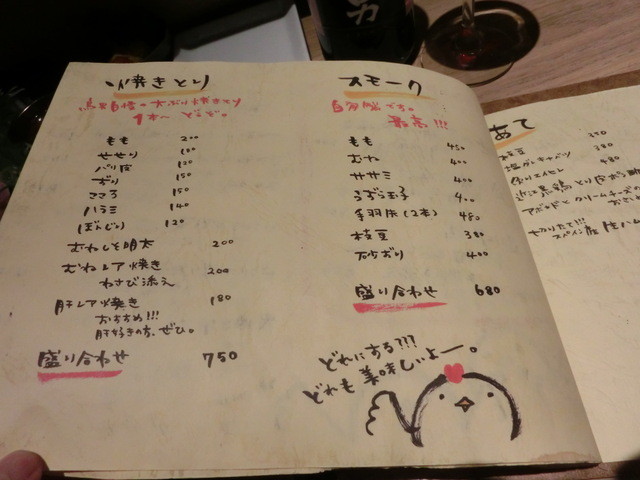 焼きとり
鳥自慢の大ぶり焼きとり
1本〜どうぞ。
もも 200
せせり 150
バリ皮 120
ずり 150
こころ 150
ハラミ 140
ぼんじり 120
むねしそ明太 200
むねレア焼き
わさび添え 200
肝レア焼き 180
おすすめ!!!
肝好きの方、ぜひ。
盛り合わせ 750
スモーク
自家製です。
最高!!!
もも 450
むね 400
ササミ 400
うずら玉子 400
手羽先(2本) 480
枝豆 380
砂ずり 400
盛り合わせ 680
どれにする???
どれも美味しいよー。
あて
枝豆 350
塩ダレキャベツ 380
480
アボカドとクリームチーズの
切りたて!!!
スペイン産 生ハム
男